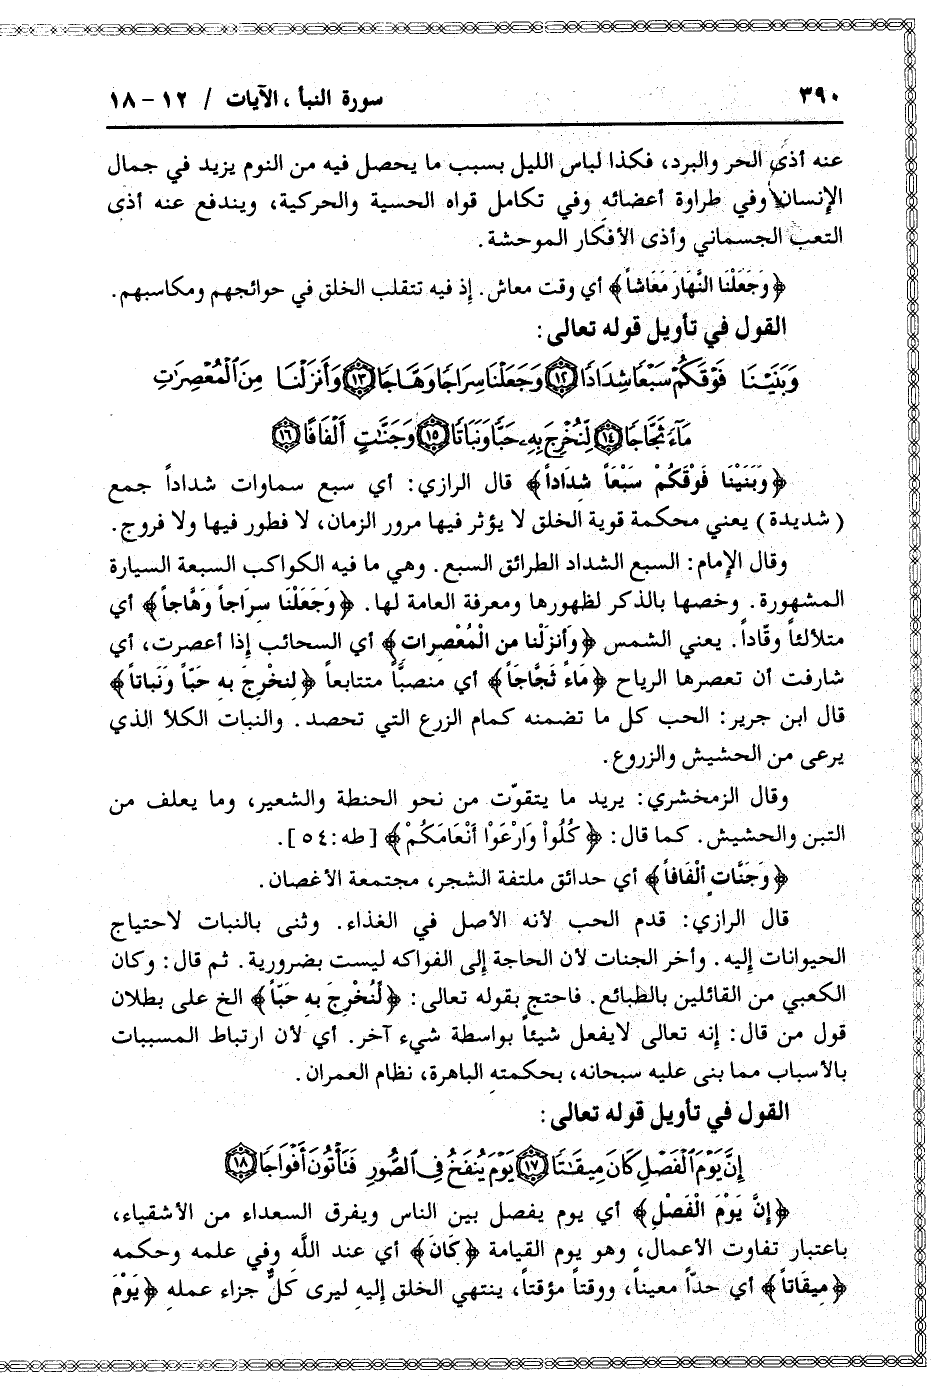 ٣٩٠ سورة النبأ ، الآيات / ١٢ - ١٨
عنه أذى الحر والبرد، فكذا لباس الليل بسبب ما يحصل فيه من النوم يزيد في جمال
الإنسان وفي طراوة أعضائه وفي تكامل قواه الحسية والحركية، ويندفع عنه أذى
التعب الجسماني وأذى الأفكار الموحشة.
﴿وَجَعَلْنَا النَّهَارَ مَعَاشاً﴾ أي وقت معاش. إذ فيه تتقلب الخلق في حوائجهم ومكاسبهم.
القول في تأويل قوله تعالى:
وَبَنَيْنَا فَوْقَكُمْ سَبْعًا شِدَادًا ١٢ وَجَعَلْنَا سِرَاجًا وَهَّاجًا ١٣ وَأَنزَلْنَا مِنَ ٱلْمُعْصِرَٰتِ
مَآءً ثَجَّاجًا ١٤ لِّنُخْرِجَ بِهِۦ حَبًّا وَنَبَاتًا ١٥ وَجَنَّٰتٍ أَلْفَافًا ١٦
﴿وَبَنَيْنَا فَوْقَكُمْ سَبْعاً شِدَاداً﴾ قال الرازي: أي سبع سماوات شداداً جمع
(شديدة) يعني محكمة قوية الخلق لا يؤثر فيها مرور الزمان، لا فطور فيها ولا فروج.
وقال الإمام: السبع الشداد الطرائق السبع. وهي ما فيه الكواكب السبعة السيارة
المشهورة. وخصها بالذكر لظهورها ومعرفة العامة لها. ﴿وَجَعَلْنَا سِرَاجاً وَهَّاجاً﴾ أي
متلألئاً وقّاداً. يعني الشمس ﴿وَأَنزَلْنَا مِنَ الْمُعْصِرات﴾ أي السحائب إذا أعصرت، أي
شارفت أن تعصرها الرياح ﴿مَاءً ثَجَّاجَاً﴾ أي منصبًّا متتابعاً ﴿لِنخْرِجَ بِه حَبّاً وَنَباتاً﴾
قال ابن جرير: الحب كل ما تضمنه كمام الزرع التي تحصد. والنبات الكلأ الذي
يرعى من الحشيش والزروع.
وقال الزمخشري: يريد ما يتقوّت من نحو الحنطة والشعير، وما يعلف من
التبن والحشيش. كما قال: ﴿كُلُواْ وَارْعَوْا أَنْعَامَكُمْ﴾ [طه:٥٤].
﴿وَجَنَّات ألْفَافاً﴾ أي حدائق ملتفة الشجر، مجتمعة الأغصان.
قال الرازي: قدم الحب لأنه الأصل في الغذاء. وثنى بالنبات لاحتياج
الحيوانات إليه. وأخر الجنات لأن الحاجة إلى الفواكه ليست بضرورية. ثم قال: وكان
الكعبي من القائلين بالطبائع. فاحتج بقوله تعالى: ﴿لِّنُخْرِجَ بِه حَبّاً﴾ الخ على بطلان
قول من قال: إنه تعالى لايفعل شيئاً بواسطة شيء آخر. أي لأن ارتباط المسببات
بالأسباب مما بنى عليه سبحانه، بحكمته الباهرة، نظام العمران.
القول في تأويل قوله تعالى:
إِنَّ يَوْمَ ٱلْفَصْلِ كَانَ مِيقَٰتًا ١٧ يَوْمَ يُنفَخُ فِي ٱلصُّورِ فَتَأْتُونَ أَفْوَاجًا ١٨
﴿إِنَّ يَوْمَ الْفَصْلِ﴾ أي يوم يفصل بين الناس ويفرق السعداء من الأشقياء،
باعتبار تفاوت الأعمال، وهو يوم القيامة ﴿كَانَ﴾ أي عند اللَّه وفي علمه وحكمه
﴿مِيقَاتاً﴾ أي حدّاً معيناً، ووقتاً مؤقتاً، ينتهي الخلق إليه ليرى كلٌّ جزاء عمله ﴿يَوْمَ